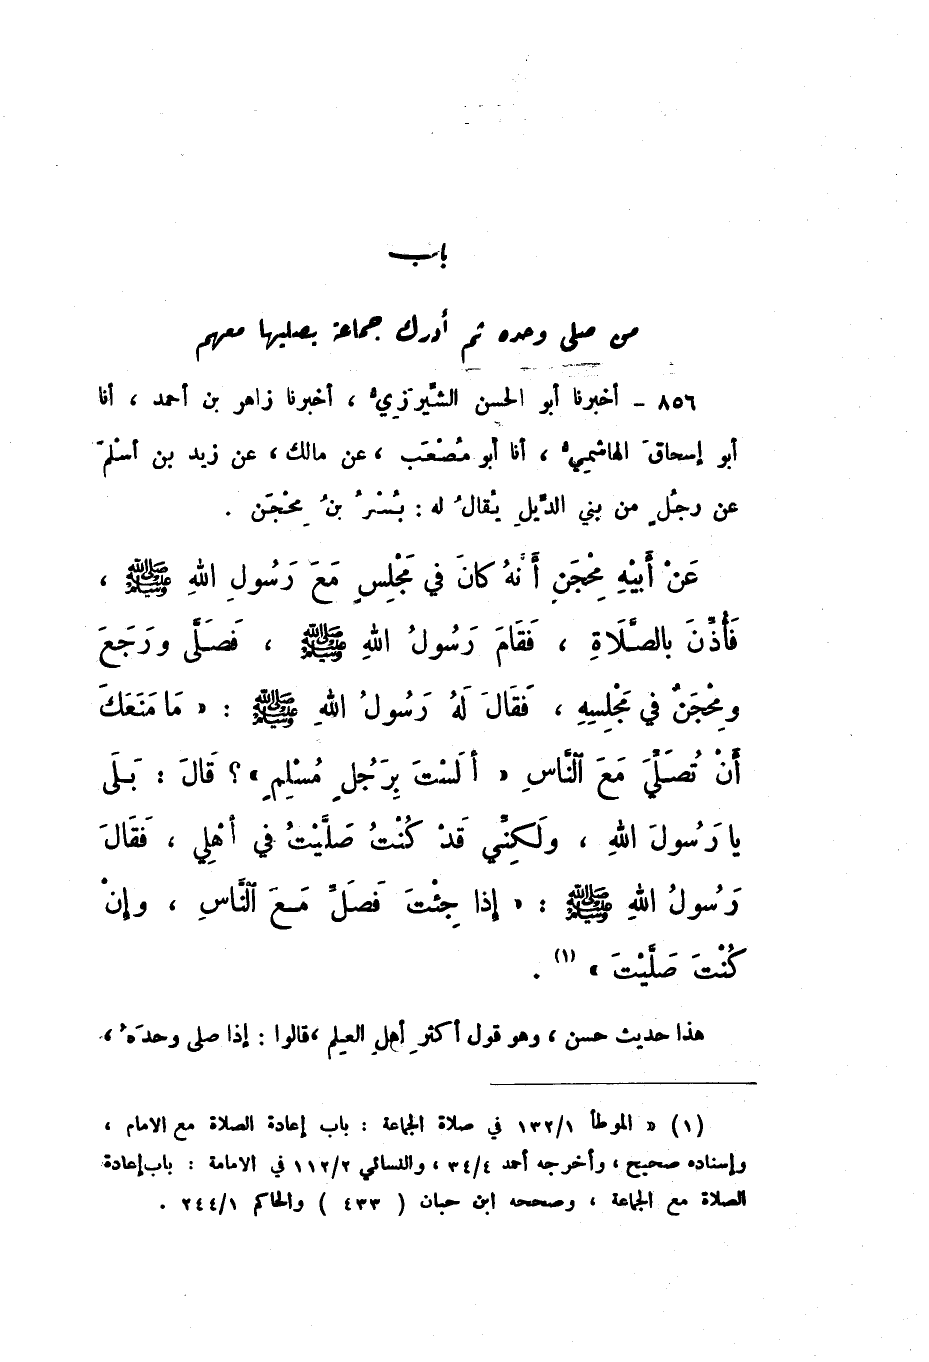 باب
من صلى وحده ثم أدرك جماعة يصليها معهم
٨٥٦ - أخبرنا أبو الحسن الشِّيرَزِيُّ ، أخبرنا زاهر بن أحمد ، أنا
أبو إسحاقَ الهاشميُّ ، أنا أبو مُصْعَب ، عن مالك ، عن زيد بن أسْلَمَ
عن رجُلٍ من بني الدِّيلِ يُقالُ له : بُسْرُ بنُ مِحْجَن .
عَنْ أَبِيْهِ مِحْجَنٍ أَنَّهُ كانَ في مَجْلِسٍ مَعَ رَسُولِ اللهِ ﷺ ،
فَأُذِّنَ بالصَّلَاةِ ، فَقَامَ رَسُولُ اللهِ ﷺ ، فَصَلَّى ورَجَعَ
ومِحْجَنٌ في مَجْلِسِهِ ، فَقَالَ لَهُ رَسُولُ اللهِ ﷺ : « مَا مَنَعَكَ
أَنْ تُصَلِّيَ مَعَ النَّاسِ « ألَسْتَ بِرَجُلٍ مُسْلِمٍ » ؟ قَالَ : بَلَى
يا رَسُولَ اللهِ ، ولَكِنِّي قَدْ كُنْتُ صَلَّيْتُ في أهْلِي ، فَقَالَ
رَسُولُ اللهِ ﷺ : « إذا جِئْتَ فَصَلِّ مَعَ النَّاسِ ، وإنْ
كُنْتَ صَلَّيْتَ » (١) .
هذا حديث حسن ، وهو قول أكثرِ أهلِ العِلم ، قالوا : إذا صلى وحدَهُ ،
(١) « الموطأ ١٣٢/١ في صلاة الجماعة : باب إعادة الصلاة مع الامام ،
وإسناده صحيح ، وأخرجه أحمد ٣٤/٤ ، والنسائي ١١٢/٢ في الامامة : باب إعادة
الصلاة مع الجماعة ، وصححه ابن حبان ( ٤٣٣ ) والحاكم ٢٤٤/١ .